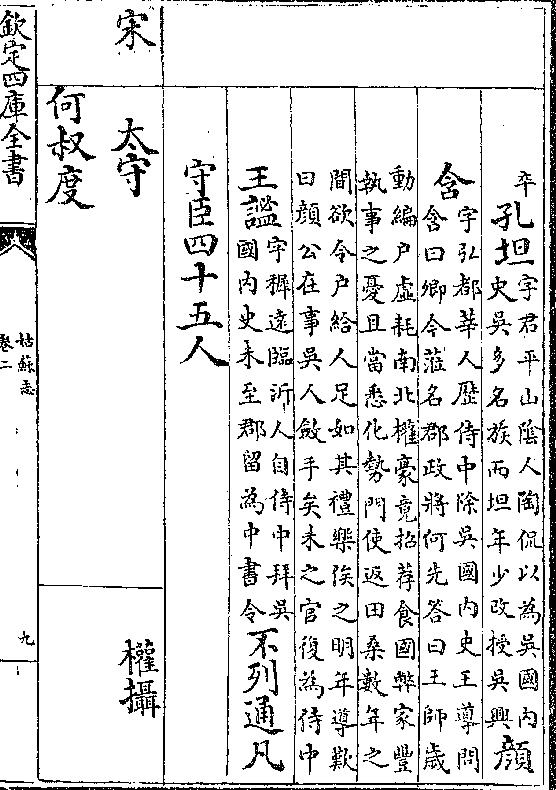 卒孔坦字君平山陰人陶侃以為吳國内
史吳多名族而坦年少改授吳興顔
含字弘都莘人歷侍中除吳國内史王導問
含曰卿今蒞名郡政將何先答曰王師歲
動編户虛耗南北權豪竟招荐食國弊家豐
執事之憂且當悉化勢門使返田桑數年之
間欲令户給人足如其禮樂俟之明年導歎
曰顔公在事吳人斂手矣未之官復為侍中
王謐字穉逺臨沂人自侍中拜吳
國内史未至郡留為中書令不列通凡
守臣四十五人
宋 太守 權攝
何叔度
欽定四庫全書
姑蘇志
卷二
九